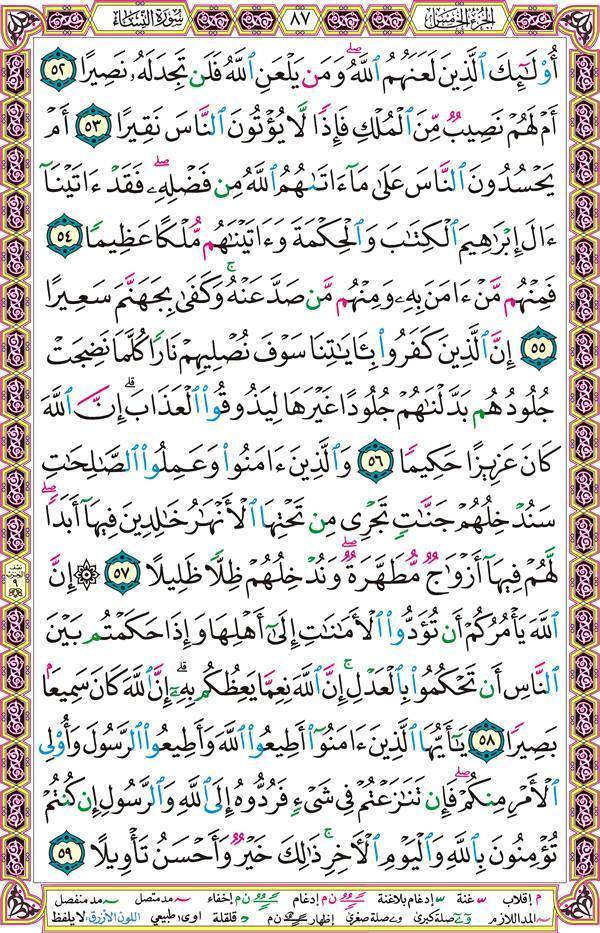 الجزء الخامس ٨٧ سورة النساء
أُوْلَٰٓئِكَ ٱلَّذِينَ لَعَنَهُمُ ٱللَّهُۖ وَمَن يَلۡعَنِ ٱللَّهُ فَلَن تَجِدَ لَهُۥ نَصِيرًا ٥٢
أَمۡ لَهُمۡ نَصِيبٞ مِّنَ ٱلۡمُلۡكِ فَإِذٗا لَّا يُؤۡتُونَ ٱلنَّاسَ نَقِيرًا ٥٣ أَمۡ
يَحۡسُدُونَ ٱلنَّاسَ عَلَىٰ مَآ ءَاتَىٰهُمُ ٱللَّهُ مِن فَضۡلِهِۦۖ فَقَدۡ ءَاتَيۡنَآ
ءَالَ إِبۡرَٰهِيمَ ٱلۡكِتَٰبَ وَٱلۡحِكۡمَةَ وَءَاتَيۡنَٰهُم مُّلۡكًا عَظِيمٗا ٥٤
فَمِنۡهُم مَّنۡ ءَامَنَ بِهِۦ وَمِنۡهُم مَّن صَدَّ عَنۡهُۚ وَكَفَىٰ بِجَهَنَّمَ سَعِيرًا
٥٥ إِنَّ ٱلَّذِينَ كَفَرُواْ بِـَٔايَٰتِنَا سَوۡفَ نُصۡلِيهِمۡ نَارٗا كُلَّمَا نَضِجَتۡ
جُلُودُهُم بَدَّلۡنَٰهُمۡ جُلُودًا غَيۡرَهَا لِيَذُوقُواْ ٱلۡعَذَابَۗ إِنَّ ٱللَّهَ
كَانَ عَزِيزًا حَكِيمٗا ٥٦ وَٱلَّذِينَ ءَامَنُواْ وَعَمِلُواْ ٱلصَّٰلِحَٰتِ
سَنُدۡخِلُهُمۡ جَنَّٰتٖ تَجۡرِي مِن تَحۡتِهَا ٱلۡأَنۡهَٰرُ خَٰلِدِينَ فِيهَآ أَبَدٗاۖ
لَّهُمۡ فِيهَآ أَزۡوَٰجٞ مُّطَهَّرَةٞۖ وَنُدۡخِلُهُمۡ ظِلّٗا ظَلِيلًا ٥٧ ۞ إِنَّ
ٱللَّهَ يَأۡمُرُكُمۡ أَن تُؤَدُّواْ ٱلۡأَمَٰنَٰتِ إِلَىٰٓ أَهۡلِهَا وَإِذَا حَكَمۡتُم بَيۡنَ
ٱلنَّاسِ أَن تَحۡكُمُواْ بِٱلۡعَدۡلِۚ إِنَّ ٱللَّهَ نِعِمَّا يَعِظُكُم بِهِۦٓۗ إِنَّ ٱللَّهَ كَانَ سَمِيعَۢا
بَصِيرٗا ٥٨ يَٰٓأَيُّهَا ٱلَّذِينَ ءَامَنُوٓاْ أَطِيعُواْ ٱللَّهَ وَأَطِيعُواْ ٱلرَّسُولَ وَأُوْلِي
ٱلۡأَمۡرِ مِنكُمۡۖ فَإِن تَنَٰزَعۡتُمۡ فِي شَيۡءٖ فَرُدُّوهُ إِلَى ٱللَّهِ وَٱلرَّسُولِ إِن كُنتُمۡ
تُؤۡمِنُونَ بِٱللَّهِ وَٱلۡيَوۡمِ ٱلۡأٓخِرِۚ ذَٰلِكَ خَيۡرٞ وَأَحۡسَنُ تَأۡوِيلًا ٥٩
نصف الحزب ٩
م إقلاب غنة إدغام بلاغنة ن م إدغام ن م إخفاء مد متصل مد منفصل
المد اللازم صلة كبرى صلة صغرى إظهار ن م قلقلة اوى طبيعي اللون الأزرق لا يلفظ